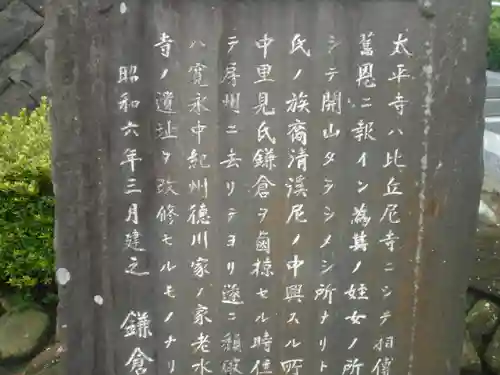 太平寺ハ比丘尼寺ニシテ相傳
舊恩ニ報イン為其ノ姪女ノ所
シテ開山タラシメシ所ナリト
氏ノ族裔清溪尼ノ中興スル所
中里見氏鎌倉ヲ鹵掠セル時住
テ房州ニ去リテヨリ遂ニ頽敗
ハ寛永中紀州徳川家ノ家老水
寺ノ遺址ヲ改修セルモノナリ
昭和六年三月建之 鎌倉